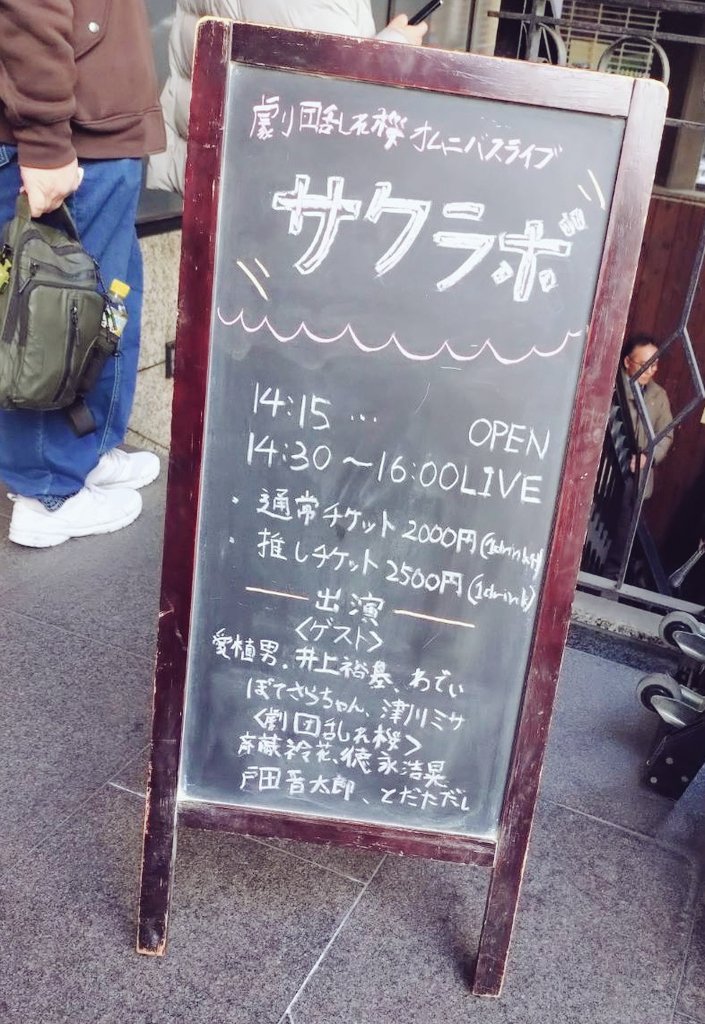 劇団乱れ桜 オムニバスライブ
サクラボ
14:15 … OPEN
14:30〜16:00 LIVE
・通常チケット 2000円(1drink付)
・推しチケット 2500円(1drink)
出演
<ゲスト>
愛植男、井上裕基、わでぃ
ぽてさらちゃん、津川ミサ
<劇団乱れ桜>
斉藤 花、徳永浩晃
戸田晋太郎、とだただし